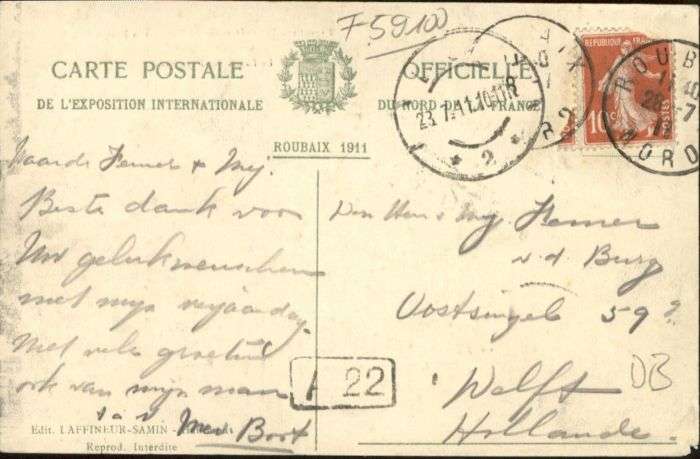 F 59100
CARTE POSTALE OFFICIELLE
DE L'EXPOSITION INTERNATIONALE DU NORD DE LA FRANCE
ROUBAIX 1911
REPUBLIQUE FRANÇAISE
10c POSTES
ROUBAIX
NORD
23.7.11.10-11R
* 2 *
Waarde Ferner & Mej.
Beste dank voor
Uw gelukwenschen
met mijn verjaardag.
Met vele groeten
ook van mijn man
Mev Boot
Den Heer & Mej Ferner
v. d. Burg
Oostsingel 59
Delft
Hollande.
22
DB
Edit. LAFFINEUR-SAMIN
Reprod. Interdite